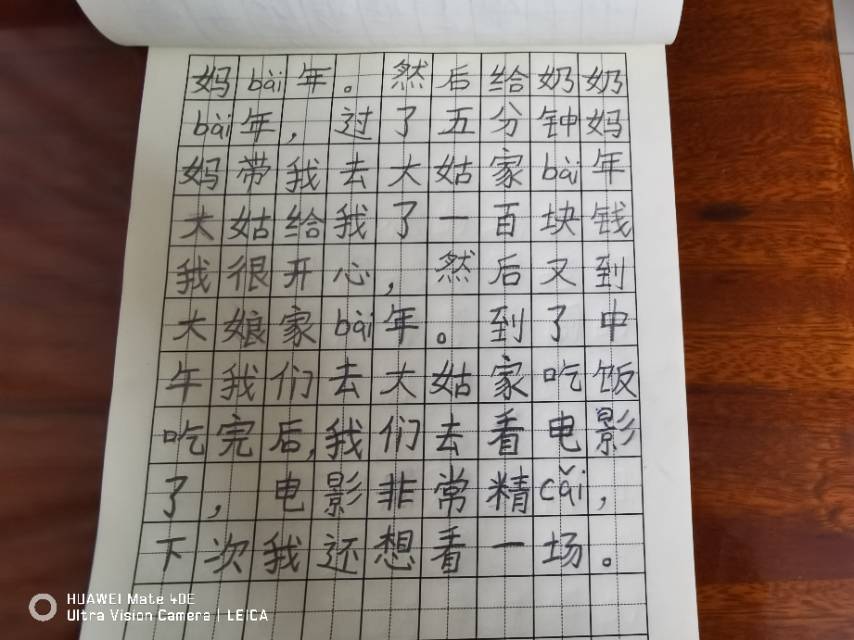 妈bài年。然后给奶奶
bài年，过了五分钟妈
妈带我去大姑家bài年
大姑给我了一百块钱
我很开心，然后又到
大娘家bài年。到了中
午我们去大姑家吃饭
吃完后,我们去看电影
了，电影非常精cǎi，
下次我还想看一场。
HUAWEI Mate 40E
Ultra Vision Camera | LEICA